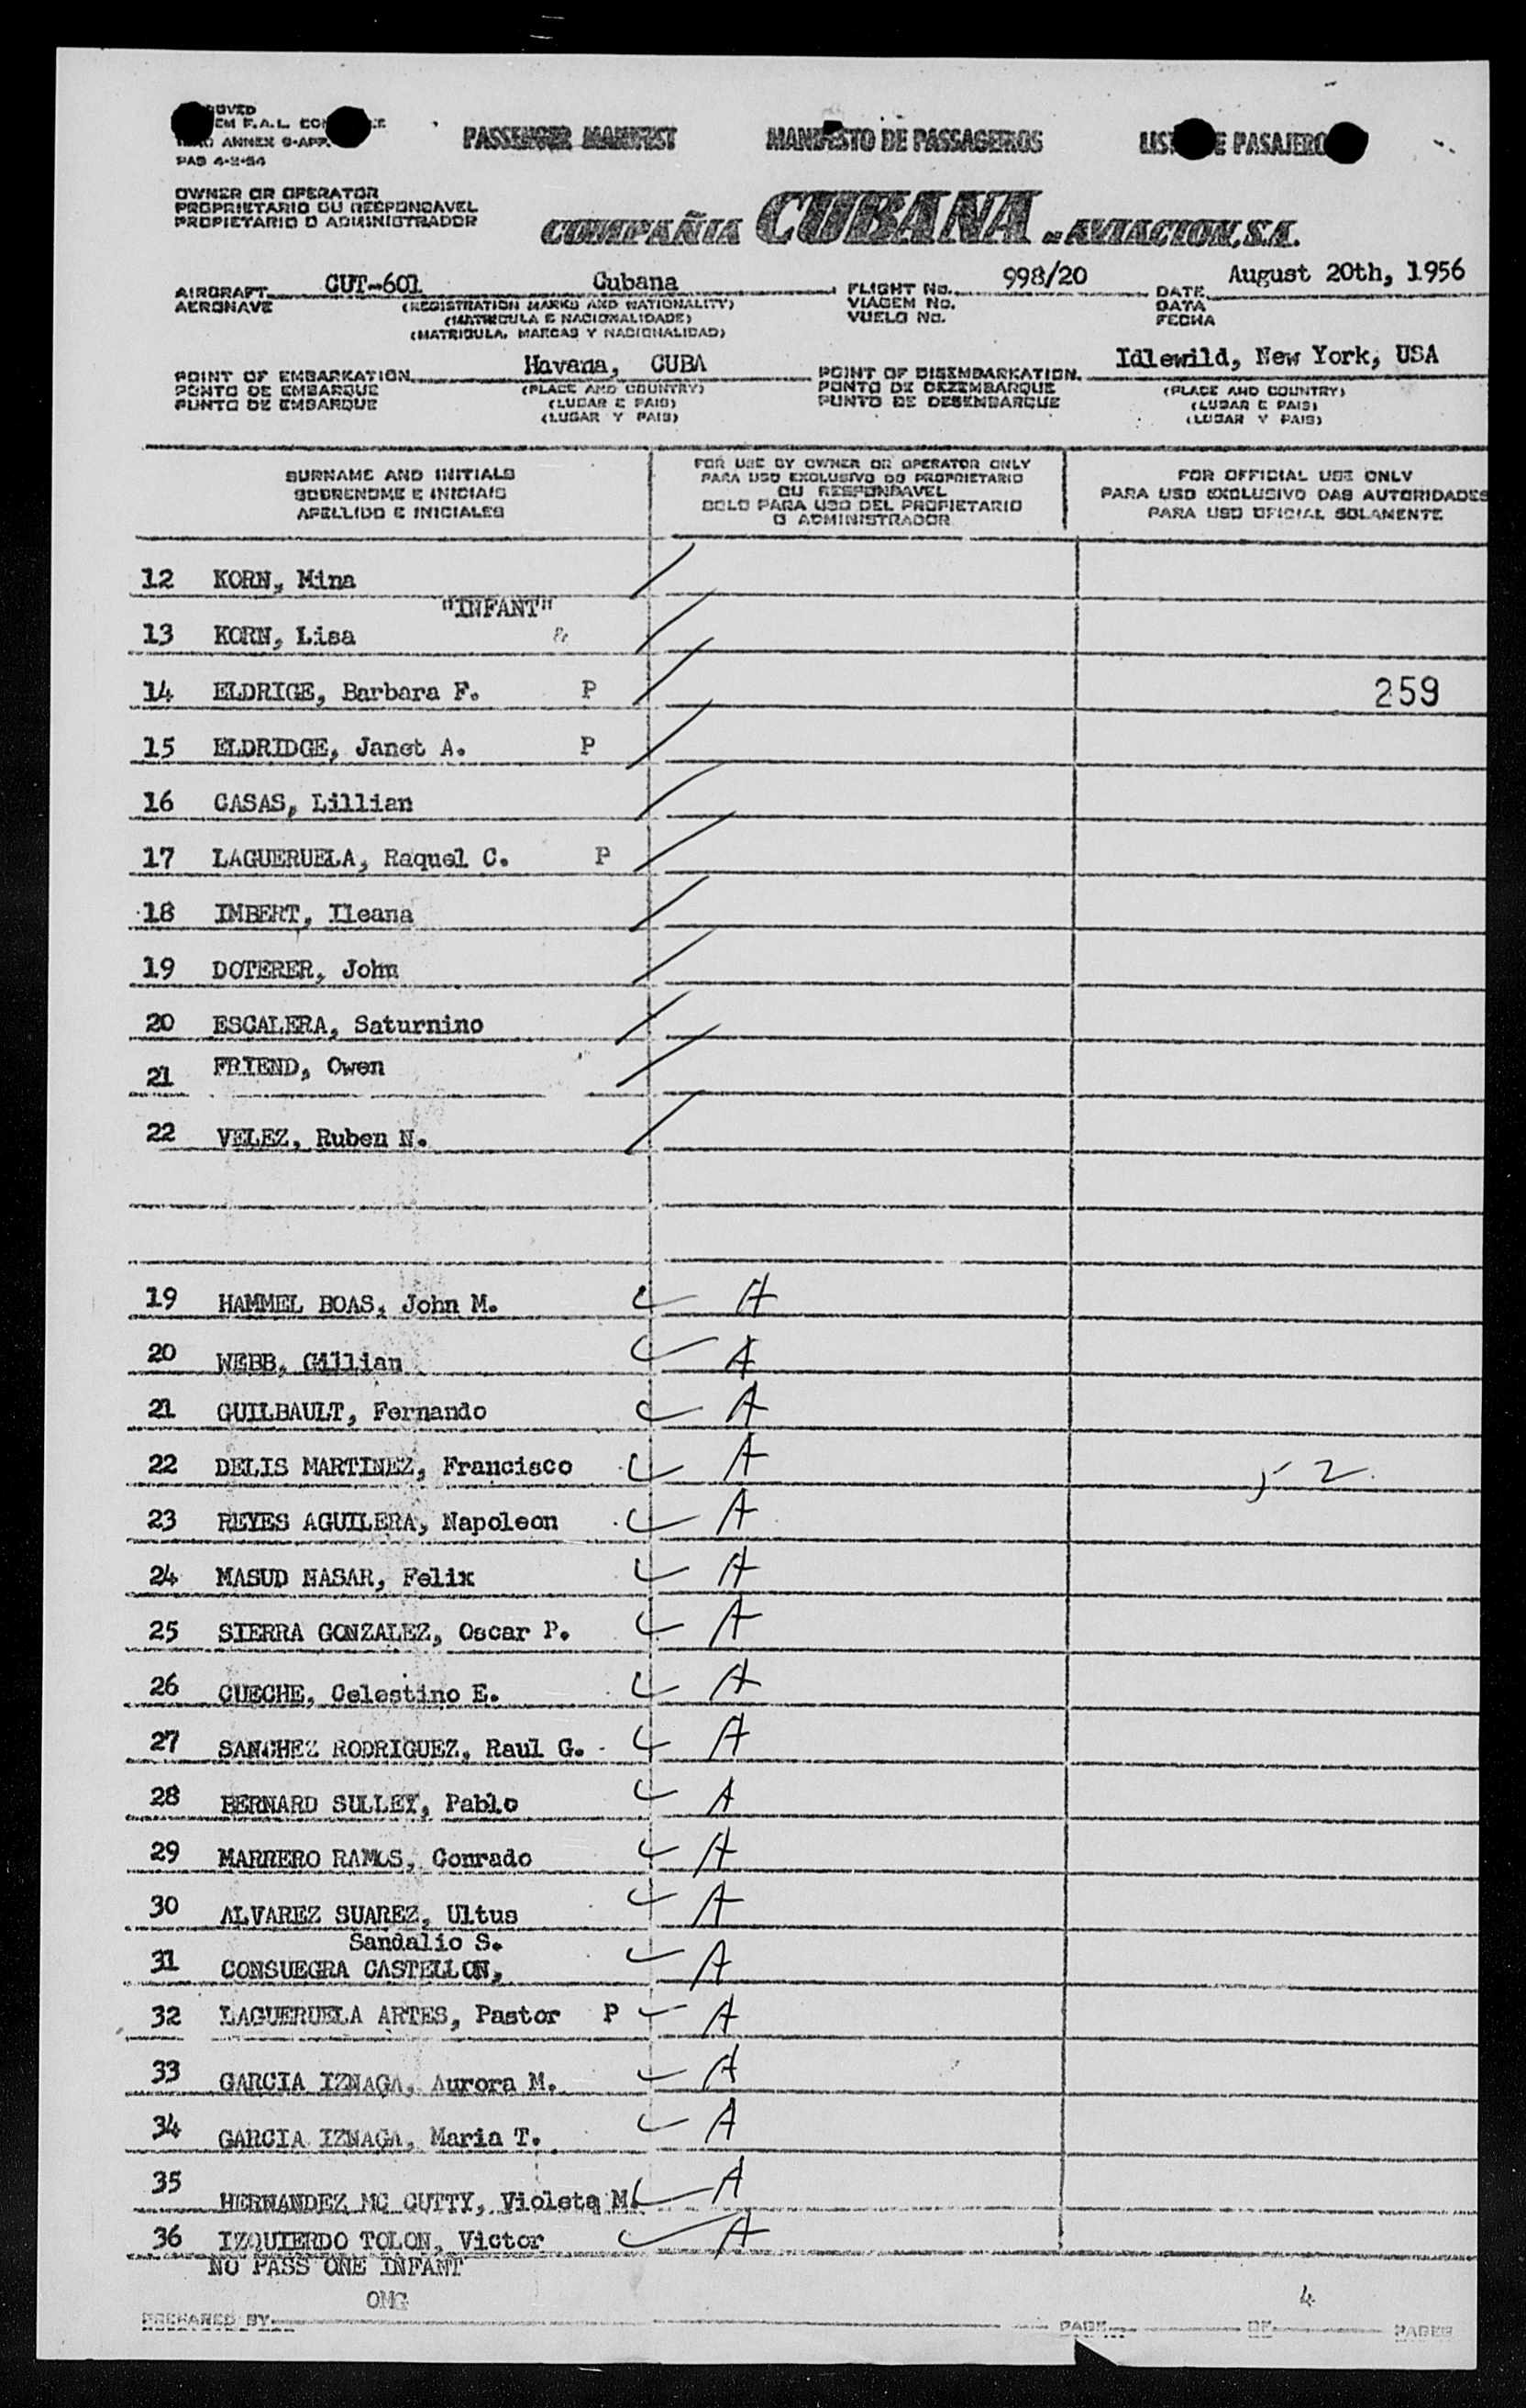 PAB 4-2-54
PASSENGER MANIFEST
MANIFESTO DE PASSAGEIROS
PASAJERO
OWNER OR OPERATOR
PROPRIETARIO OU RESPONSAVEL
PROPIETARIO O ADMINISTRADOR
COMPAÑIA CUBANA DE AVIACION, S.A.
AIRCRAFT CUT-601 Cubana FLIGHT No. 998/20 DATE August 20th, 1956
AERONAVE (REGISTRATION MARKS AND NATIONALITY) VIAGEM No. DATA
(MATRICULA E NACIONALIDADE) VUELO No. FECHA
(MATRICULA, MARCAS Y NACIONALIDAD)
POINT OF EMBARKATION Havana, CUBA POINT OF DISEMBARKATION Idlewild, New York, USA
PONTO DE EMBARQUE (PLACE AND COUNTRY) PONTO DE DEZEMBARQUE (PLACE AND COUNTRY)
PUNTO DE EMBARQUE (LUGAR E PAIS) PUNTO DE DESEMBARQUE (LUGAR E PAIS)
(LUGAR Y PAIS) (LUGAR Y PAIS)
SURNAME AND INITIALS
SOBRENOME E INICIAIS
APELLIDO E INICIALES
FOR USE BY OWNER OR OPERATOR ONLY
PARA USO EXCLUSIVO DO PROPRIETARIO
OU RESPONSAVEL
SOLO PARA USO DEL PROPIETARIO
O ADMINISTRADOR
FOR OFFICIAL USE ONLY
PARA USO EXCLUSIVO DAS AUTORIDADES
PARA USO OFICIAL SOLAMENTE
12 KORN, Mina
"INFANT"
13 KORN, Lisa
14 ELDRIGE, Barbara F. P 259
15 ELDRIDGE, Janet A. P
16 CASAS, Lillian
17 LAGUERUELA, Raquel C. P
18 IMBERT, Ileana
19 DOTERER, John
20 ESCALERA, Saturnino
21 FRIEND, Owen
22 VELEZ, Ruben N.
19 HAMMEL BOAS, John M. A
20 WEBB, Gillian A
21 GUILBAULT, Fernando A
22 DELIS MARTINEZ, Francisco A 52
23 REYES AGUILERA, Napoleon A
24 MASUD NASAR, Felix A
25 SIERRA GONZALEZ, Oscar P. A
26 CUECHE, Celestino E. A
27 SANCHEZ RODRIGUEZ, Raul G. A
28 BERNARD SULLEY, Pablo A
29 MARRERO RAMOS, Conrado A
30 ALVAREZ SUAREZ, Ultus A
Sandalio S.
31 CONSUEGRA CASTELLON, A
32 LAGUERUELA ARTES, Pastor P A
33 GARCIA IZNAGA, Aurora M. A
34 GARCIA IZNAGA, Maria T. A
35 HERNANDEZ MC CUTTY, Violeta M. A
36 IZQUIERDO TOLON, Victor A
NO PASS ONE INFANT
OMG 4
PREPARED BY PAGE OF PAGES